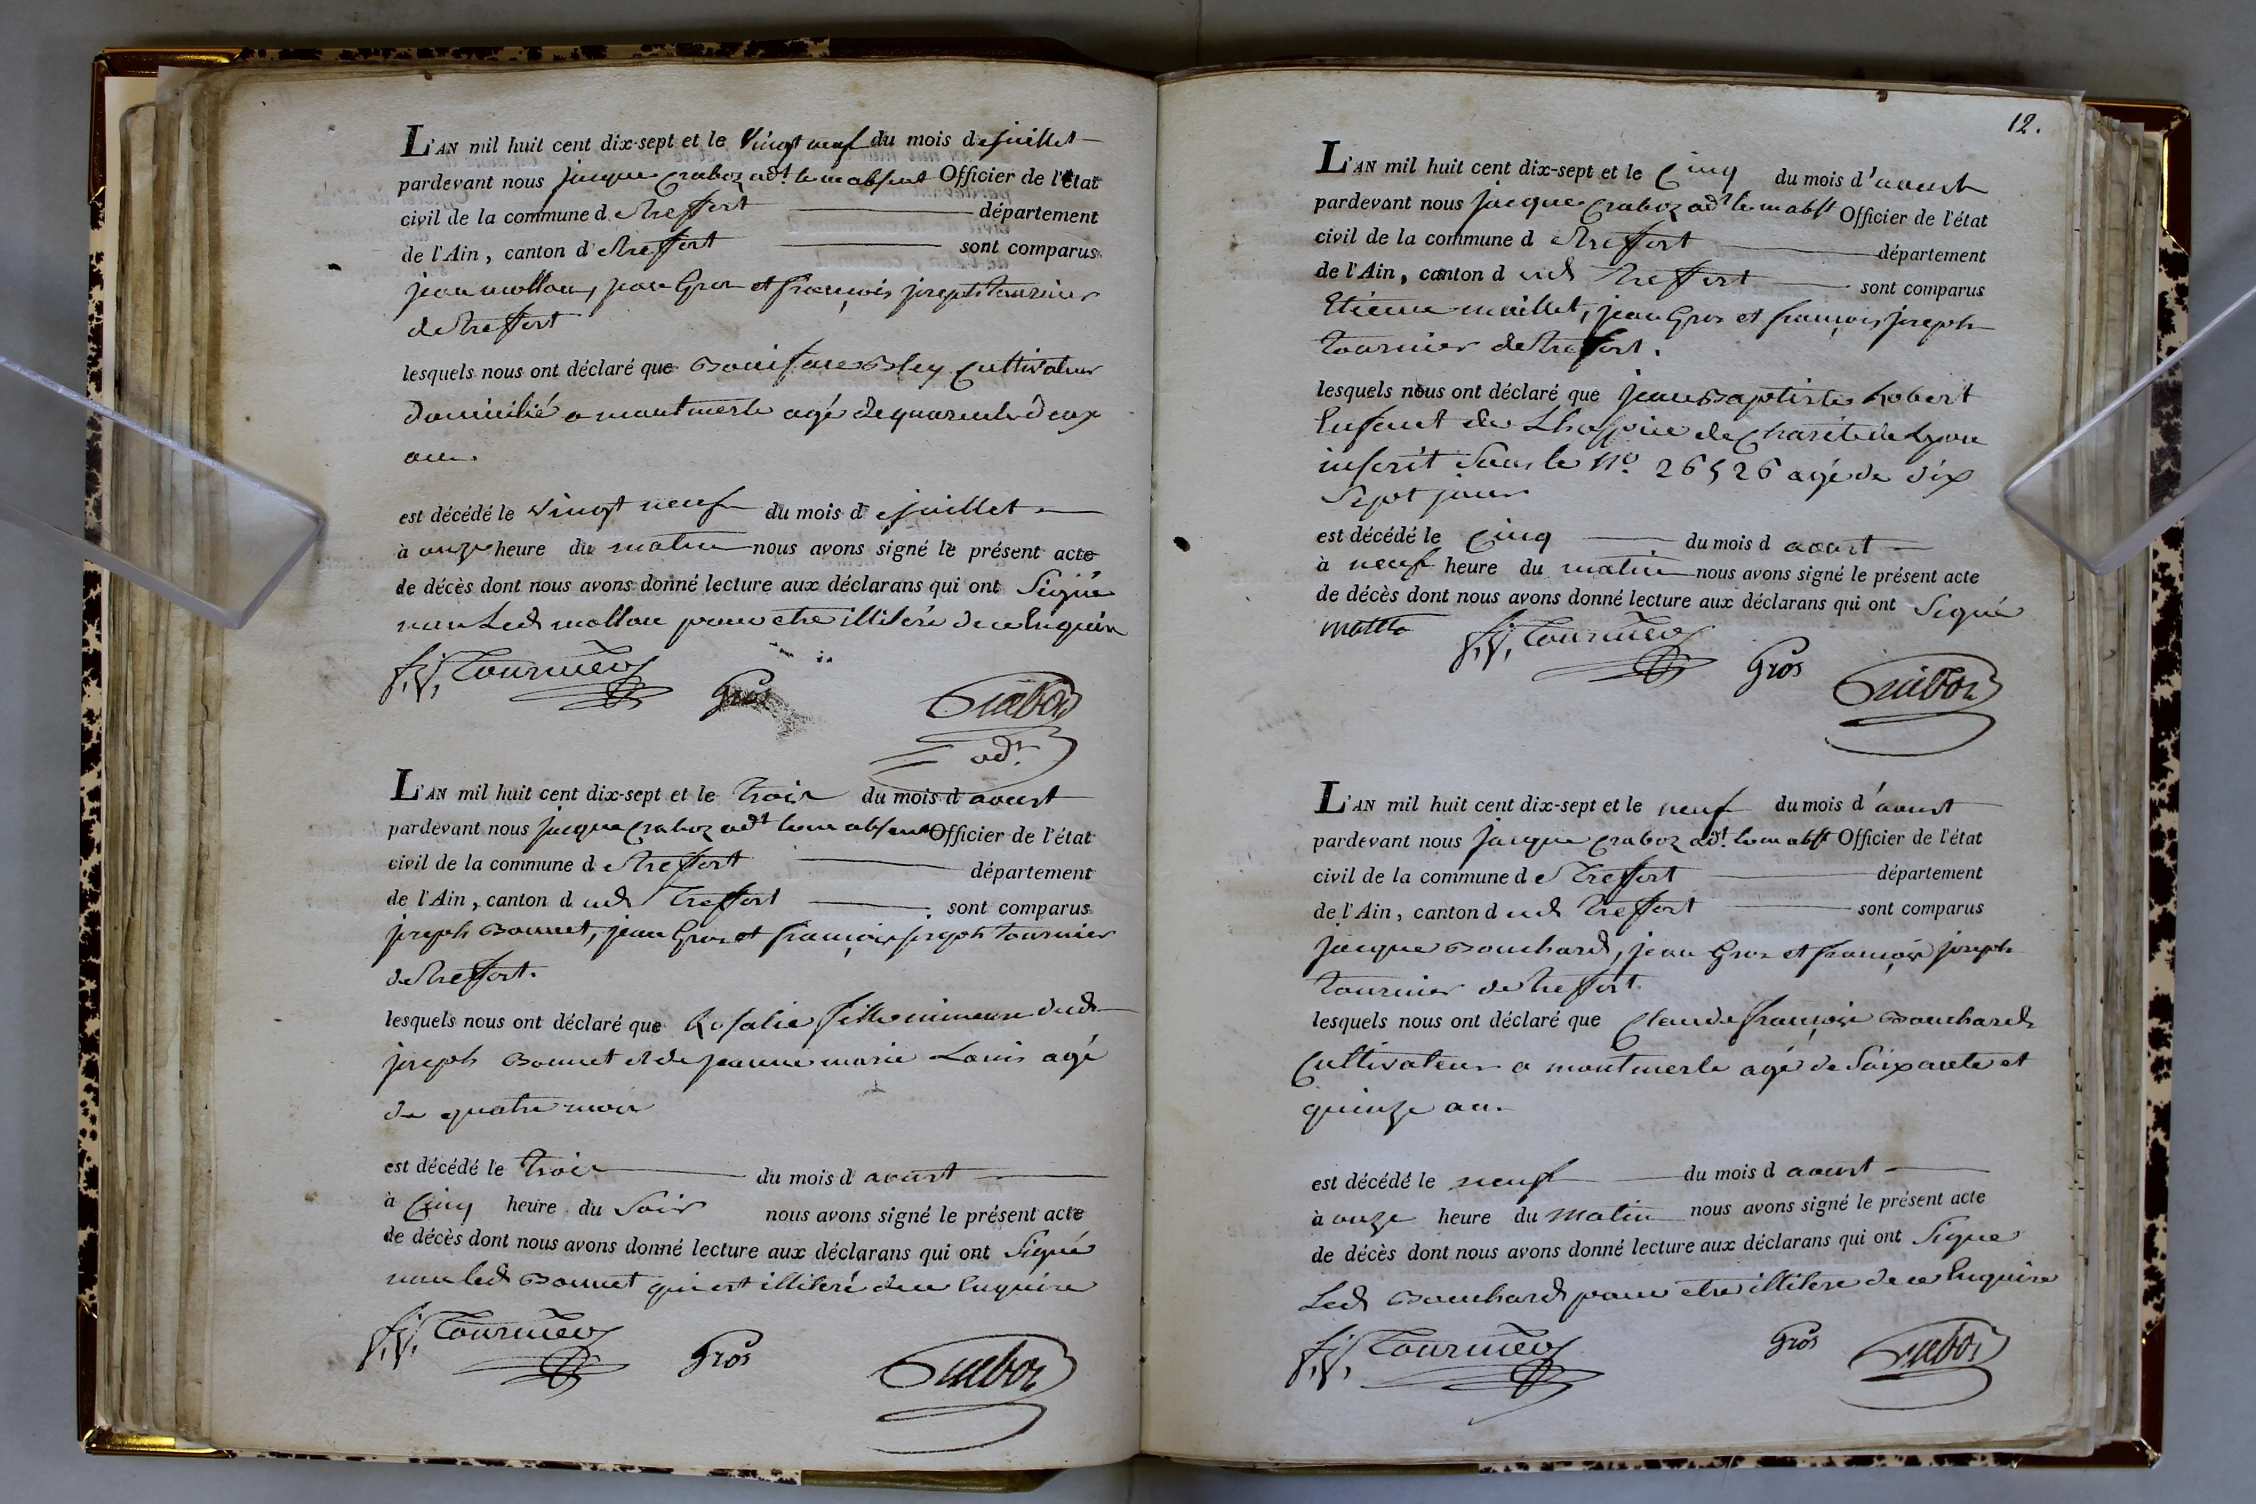 L'AN mil huit cent dix-sept et le vingt neuf du mois de juillet
pardevant nous jacque Craboz adt. le m absent Officier de l'état
civil de la commune de treffort département
de l'Ain, canton de treffort sont comparus
jean mollon, jean Gros et françois joseph tournier
de treffort
lesquels nous ont déclaré que Boniface Bley Cultivateur
domicilié a montmerle agé de quarente deux
ans.
est décédé le vingt neuf du mois de juillet
à onze heure du matin nous avons signé le présent acte
de décès dont nous avons donné lecture aux déclarans qui ont Signé
non Led mollon pour etre illiteré de ce Enquis
f, j, Tournier Gros Craboz
adt.
L'AN mil huit cent dix-sept et le trois du mois d aoust
pardevant nous jacque Craboz adt le m absent Officier de l'état
civil de la commune de treffort département
de l'Ain, canton d ud Treffort sont comparus
joseph Bonnet, jean Gros et françois joseph tournier
de treffort.
lesquels nous ont déclaré que Rosalie fille mineure dud
joseph Bonnet et de jeanne marie Louis agé
de quatre mois
est décédé le trois du mois d aoust
à Cinq heure du Soir nous avons signé le présent acte
de décès dont nous avons donné lecture aux déclarans qui ont Signé
non led Bonnet qui est illiteré de ce Enquis
f, j, Tournier Gros Craboz
12.
L'AN mil huit cent dix-sept et le Cinq du mois d'aoust
pardevant nous jacque Craboz adt le m abst Officier de l'état
civil de la commune de treffort département
de l'Ain, canton d ud Treffort sont comparus
Etienne maillet, jean Gros et françois joseph
tournier de treffort.
lesquels nous ont déclaré que jean Baptiste Robert
Enfant de Lhospice de Charité de Lyon
inscrit Sous le No. 26526 agé de dix
Sept jours
est décédé le Cinq du mois d aoust
à neuf heure du matin nous avons signé le présent acte
de décès dont nous avons donné lecture aux déclarans qui ont Signé
f, j, Tournier Gros Craboz
L'AN mil huit cent dix-sept et le neuf du mois d'aoust
pardevant nous jacque Craboz adt. le m abst Officier de l'état
civil de la commune de Treffort département
de l'Ain, canton d ud Treffort sont comparus
jacque Bouchard, jean Gros et françois joseph
tournier de treffort.
lesquels nous ont déclaré que Claude françois Bouchard
Cultivateur a montmerle agé de Soixante et
quinze ans.
est décédé le neuf du mois d aoust
à onze heure du matin nous avons signé le présent acte
de décès dont nous avons donné lecture aux déclarans qui ont Signé
Led Bouchard pour etre illiteré de ce Enquis
f, j, Tournier Gros Craboz